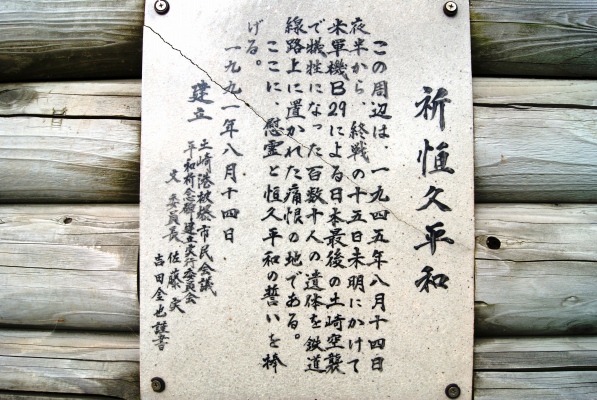 祈恒久平和
この周辺は、一九四五年八月十四日
夜半から、終戦の十五日未明にかけて
米軍機B29による日本最後の土崎空襲
で犠牲になった百数十人の遺体を鉄道
線路上に置かれた痛恨の地である。
ここに、慰霊と恒久平和の誓いを捧
げる。
一九九一年八月十四日
建立 土崎港被爆市民会議
平和祈念碑建立実行委員会
文 委員長 佐藤
吉田金也謹書